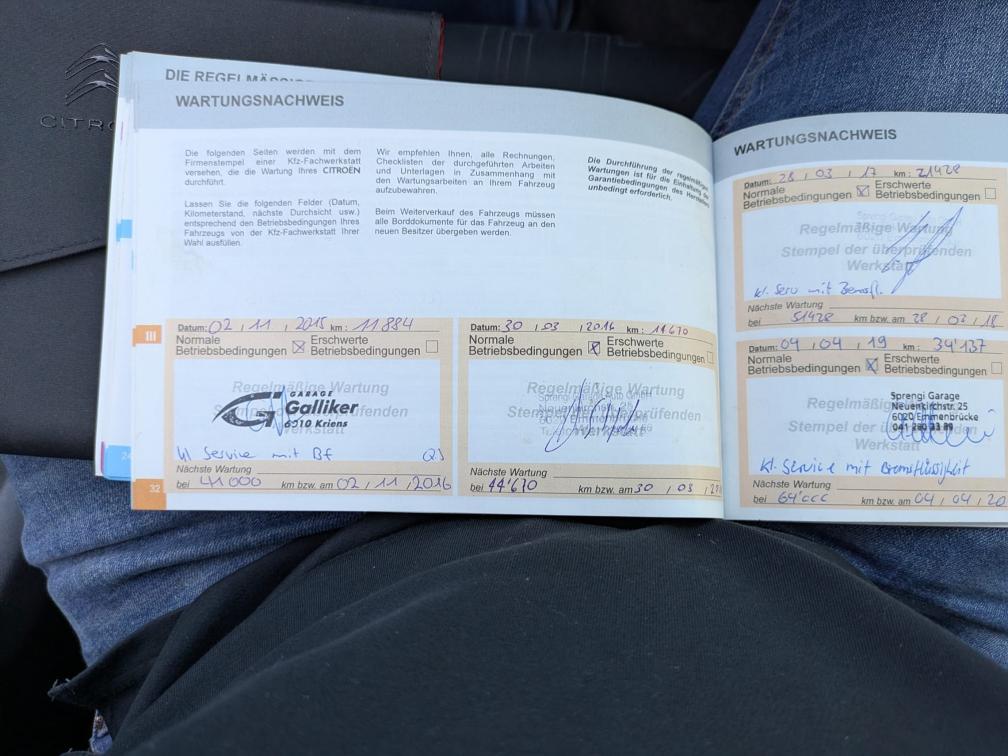 CITRO
DIE REGELMÄSSIG
WARTUNGSNACHWEIS
Die folgenden Seiten werden mit dem
Firmenstempel einer Kfz-Fachwerkstatt
versehen, die die Wartung Ihres CITROËN
durchführt.
Lassen Sie die folgenden Felder (Datum,
Kilometerstand, nächste Durchsicht usw.)
entsprechend den Betriebsbedingungen Ihres
Fahrzeugs von der Kfz-Fachwerkstatt Ihrer
Wahl ausfüllen.
Wir empfehlen Ihnen, alle Rechnungen,
Checklisten der durchgeführten Arbeiten
und Unterlagen in Zusammenhang mit
den Wartungsarbeiten an Ihrem Fahrzeug
aufzubewahren.
Beim Weiterverkauf des Fahrzeugs müssen
alle Borddokumente für das Fahrzeug an den
neuen Besitzer übergeben werden.
Die Durchführung der regelmäßigen
Wartungen ist für die Einhaltung der
Garantiebedingungen des Herstellers
unbedingt erforderlich.
III
Datum: 02 , 11 , 2015 km : 11884
Normale Erschwerte
Betriebsbedingungen Betriebsbedingungen
Regelmäßige Wartung
Stempel der überprüfenden
Werkstatt
GARAGE
Galliker
6010 Kriens
Kl Service mit Bf
Nächste Wartung
bei 41000 km bzw. am 02 , 11 , 2016
Datum: 30 , 03 , 2016 km : 14670
Normale Erschwerte
Betriebsbedingungen Betriebsbedingungen
Regelmäßige Wartung
Stempel der überprüfenden
Werkstatt
Nächste Wartung
bei 44'670 km bzw. am 30 , 03 , 
24
32
WARTUNGSNACHWEIS
Datum: 28 , 03 , 17 km : 21428
Normale Erschwerte
Betriebsbedingungen Betriebsbedingungen
Regelmäßige Wartung
Stempel der überprüfenden
Werkstatt
kl. Serv mit Bremsfl.
Nächste Wartung
bei 51428 km bzw. am 28 , 03 , 18
Datum: 04 , 04 , 19 km : 34'137
Normale Erschwerte
Betriebsbedingungen Betriebsbedingungen
Regelmäßig
Stempel der überprüfenden
Werkstatt
Sprengi Garage
Neuenkirchstr. 25
6020 Emmenbrücke
Kl. Service mit Bremsflüssigkeit
Nächste Wartung
bei 64'000 km bzw. am 04 , 04 , 20